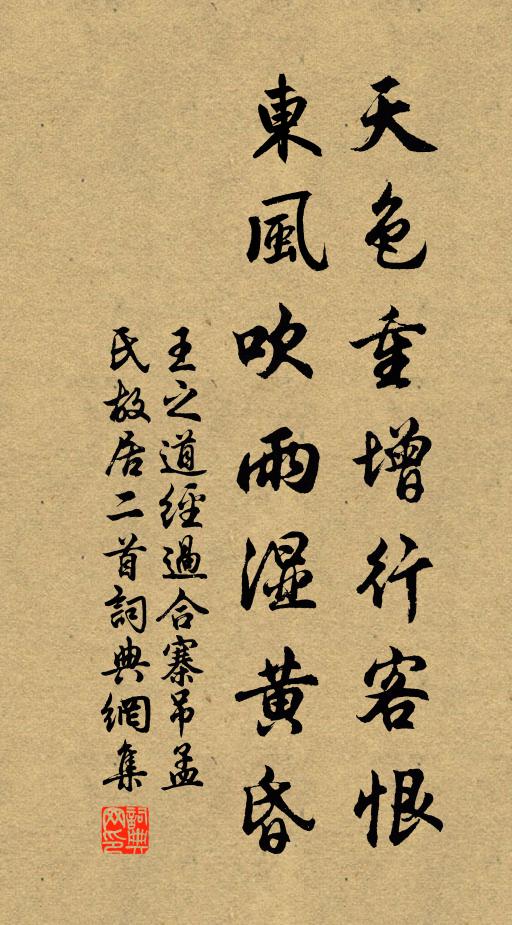 天色重增行客恨
東風吹雨濕黄昏
王之道經過合寨吊孟
氏故居二首詞典網集
詞典
网印